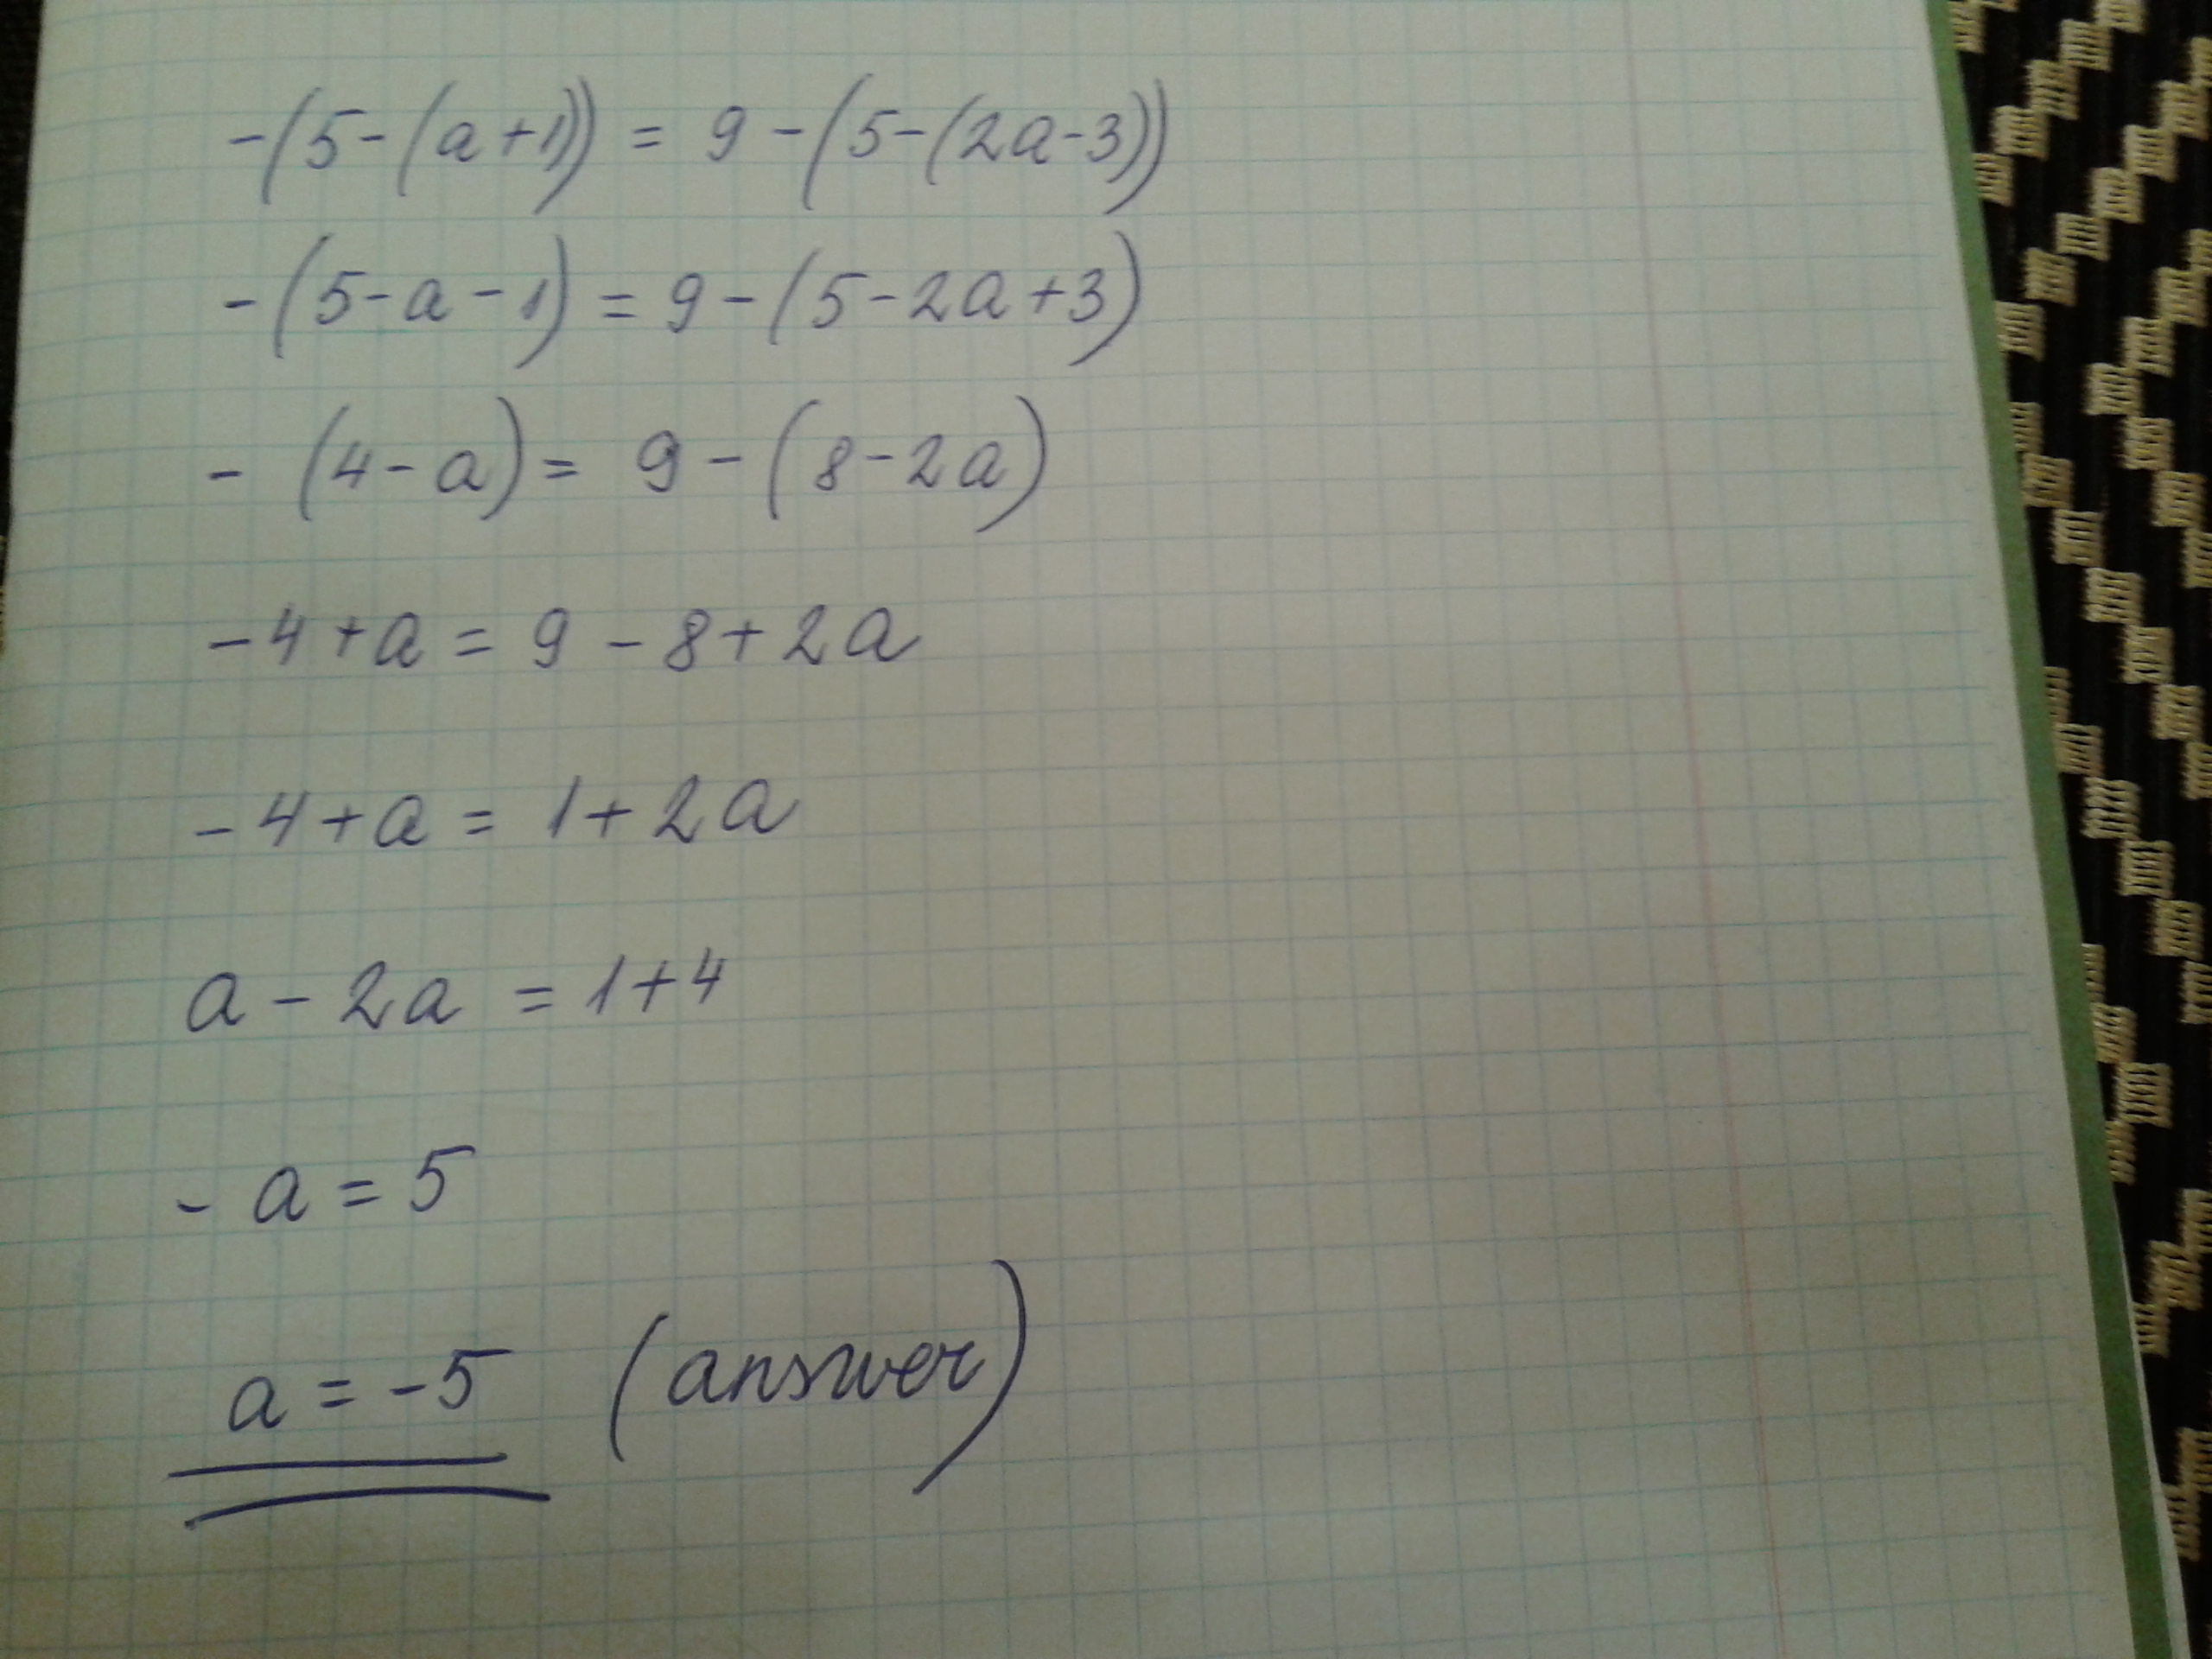 -(5-(a+1)) = 9-(5-(2a-3))
-(5-a-1) = 9-(5-2a+3)
-(4-a) = 9-(8-2a)
-4+a = 9-8+2a
-4+a = 1+2a
a-2a = 1+4
-a = 5
a = -5 (answer)